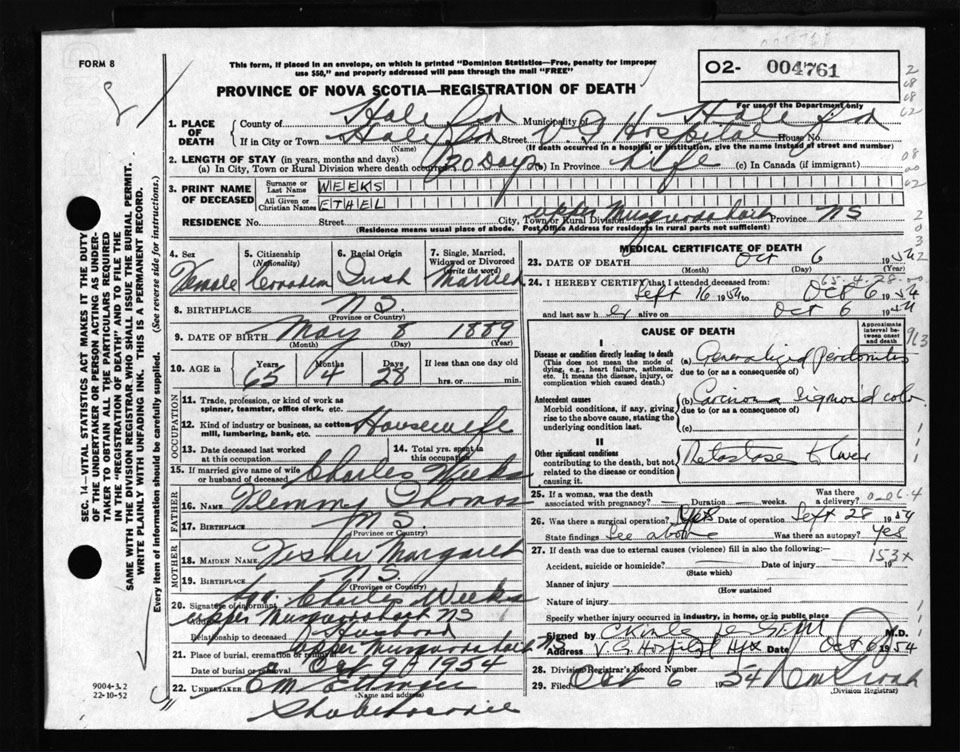 FORM 8
This form, if placed in an envelope, on which is printed "Dominion Statistics—Free, penalty for improper use $50," and properly addressed will pass through the mail "FREE"
PROVINCE OF NOVA SCOTIA—REGISTRATION OF DEATH
O2- 004761
For use of the Department only
SEC. 14—VITAL STATISTICS ACT MAKES IT THE DUTY
OF THE UNDERTAKER OR PERSON ACTING AS UNDER-
TAKER TO OBTAIN ALL THE PARTICULARS REQUIRED
IN THE "REGISTRATION OF DEATH" AND TO FILE THE
SAME WITH THE DIVISION REGISTRAR WHO SHALL ISSUE THE BURIAL PERMIT.
WRITE PLAINLY WITH UNFADING INK. THIS IS A PERMANENT RECORD.
Every item of information should be carefully supplied. (See reverse side for instructions.)
1. PLACE OF DEATH
County of Halifax Municipality of Halifax
If in City or Town Halifax Street V G Hospital House No.
(Name) (If death occurred in a hospital or institution, give the name instead of street and number)
2. LENGTH OF STAY (in years, months and days)
(a) In City, Town or Rural Division where death occurred 20 Days (b) In Province Life (c) In Canada (if immigrant)
3. PRINT NAME OF DECEASED
Surname or Last Name WEEKS
All Given or Christian Names ETHEL
RESIDENCE No. Street City, Town or Rural Division Upper Musquodoboit Province NS
(Residence means usual place of abode. Post Office Address for residents in rural parts not sufficient)
4. Sex Female
5. Citizenship (Nationality) Canadian
6. Racial Origin Irish
7. Single, Married, Widowed or Divorced (write the word) Married
8. BIRTHPLACE N.S.
(Province or Country)
9. DATE OF BIRTH May 8 1889
(Month) (Day) (Year)
10. AGE in Years 65 Months 4 Days 28 If less than one day old hrs. or min.
OCCUPATION
11. Trade, profession, or kind of work as spinner, teamster, office clerk, etc.
12. Kind of industry or business, as cotton mill, lumbering, bank, etc. Housewife
13. Date deceased last worked at this occupation
14. Total yrs. spent in this occupation
15. If married give name of wife or husband of deceased Charles Weeks
FATHER
16. NAME Flemming Thomas
17. BIRTHPLACE N.S.
MOTHER
18. MAIDEN NAME Fisher Margaret
19. BIRTHPLACE N.S.
(Province or Country)
20. Signature of informant Charles Weeks
Upper Musquodoboit NS
Relationship to deceased Husband
21. Place of burial, cremation or removal Upper Musquodoboit
Date of burial Oct 9 1954
22. UNDERTAKER
(Name and address)
9004-3.2
22-10-52
MEDICAL CERTIFICATE OF DEATH
23. DATE OF DEATH Oct 6 1954
(Month) (Day) (Year)
65-4-28
24. I HEREBY CERTIFY that I attended deceased from:
Sept 16 1954 to Oct 6 1954
and last saw h er alive on Oct 6 1954
CAUSE OF DEATH
Approximate interval between onset and death
I
Disease or condition directly leading to death
(This does not mean the mode of dying, e.g., heart failure, asthenia, etc. It means the disease, injury, or complication which caused death.)
(a) Generalized Peritonitis
due to (or as a consequence of)
Antecedent causes
Morbid conditions, if any, giving rise to the above cause, stating the underlying condition last.
(b) Carcinoma Sigmoid colon
due to (or as a consequence of)
(c)
II
Other significant conditions
contributing to the death, but not related to the disease or condition causing it.
25. If a woman, was the death associated with pregnancy? Duration weeks. Was there a delivery?
26. Was there a surgical operation? Yes Date of operation Sept 28 1954
State findings See above Was there an autopsy? Yes
27. If death was due to external causes (violence) fill in also the following:—
153x
Accident, suicide or homicide? Date of injury 19
(State which)
Manner of injury
(How sustained)
Nature of injury
Specify whether injury occurred in industry, in home, or in public place
Signed by M.D.
Address V. G. Hospital Hfx Date Oct 6 1954
28. Division Registrar's Record Number
29. Filed Oct 6 1954
(Division Registrar)